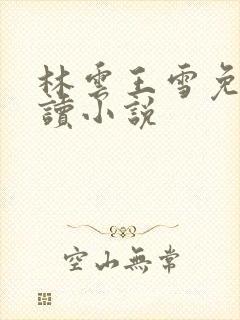 林雲王雪免
讀小說
空山無常